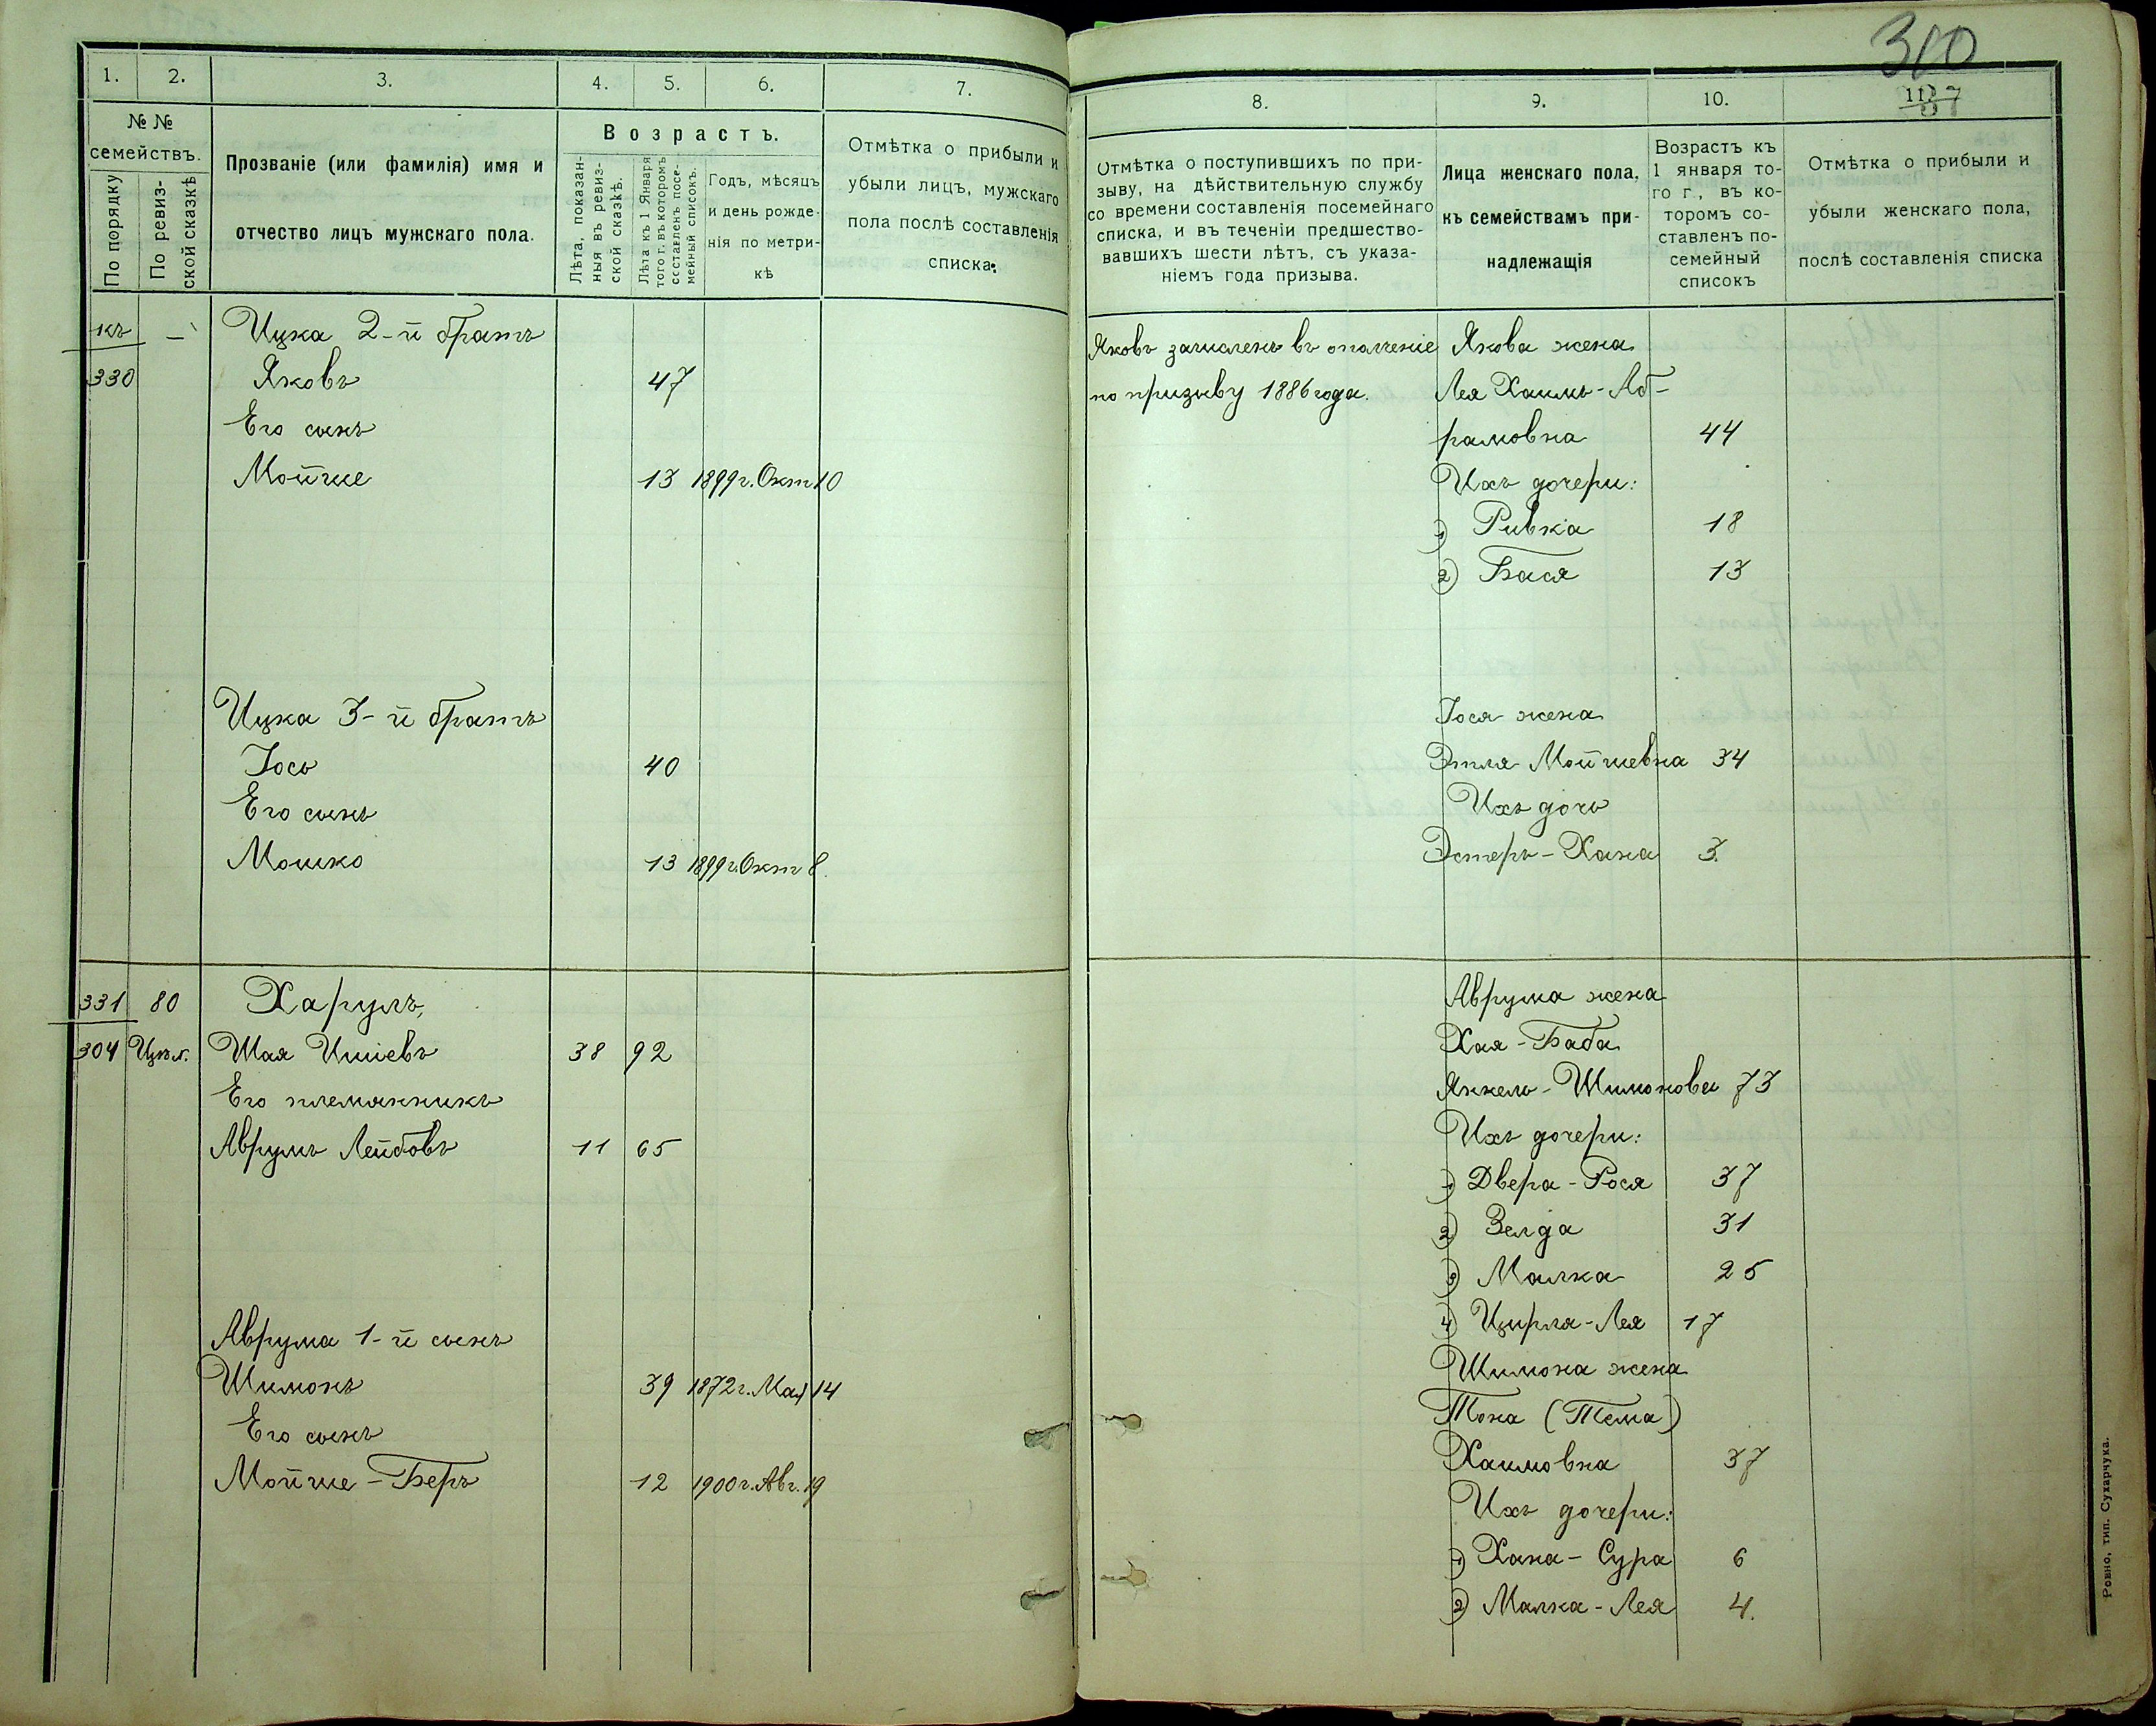 310
1. 2. 3. 4. 5. 6. 7.
№ №
семействъ.
По порядку
По ревиз-
ской сказкѣ
Прозваніе (или фамилія) имя и
отчество лицъ мужскаго пола.
Возрастъ.
Лѣта, показан-
ныя въ ревиз-
ской сказкѣ.
Лѣта къ 1 Января
того г. въ которомъ
составленъ посе-
мейный списокъ.
Годъ, мѣсяцъ
и день рожде-
нія по метри-
кѣ
Отмѣтка о прибыли и
убыли лицъ, мужскаго
пола послѣ составленія
списка.
къ — Ицка 2-й братъ
330 Яковъ 47
Его сынъ
Мойше 13 1899 г. Окт 10
Ицка 3-й братъ
Іось 40
Его сынъ
Мошко 13 1899 г. Окт 8.
331 80 Харулъ,
304 Шая Ишіевъ 38 92
Его племянникъ
Аврумъ Лейбовъ 11 65
Аврума 1-й сынъ
Шимонъ 39 1872 г. Мая 14
Его сынъ
Мойше-Беръ 12 1900 г. Авг. 19
8. 9. 10.
Отмѣтка о поступившихъ по при-
зыву, на дѣйствительную службу
со времени составленія посемейнаго
списка, и въ теченіи предшество-
вавшихъ шести лѣтъ, съ указа-
ніемъ года призыва.
Лица женскаго пола,
къ семействамъ при-
надлежащія
Возрастъ къ
1 января то-
го г., въ ко-
торомъ со-
ставленъ по-
семейный
списокъ
Отмѣтка о прибыли и
убыли женскаго пола,
послѣ составленія списка
Яковъ зачисленъ въ ополченіе Якова жена
по призыву 1886 года. Лея Хаимъ-Аб-
рамовна 44
Ихъ дочери:
1) Ривка 18
2) Бася 13
Іося жена
Этля Мойшевна 34
Ихъ дочь
Эстеръ-Хана 3.
Аврума жена
Хая-Баба
Янкель-Шимонова 73
Ихъ дочери:
1) Двера-Рося 37
2) Зелда 31
3) Малка 25
4) Цирля-Лея 17
Шимона жена
Тона (Тема)
Хаимовна 37
Ихъ дочери:
1) Хана-Сура 6
2) Малка-Лея 4.
Ровно, тип. Сухарчука.